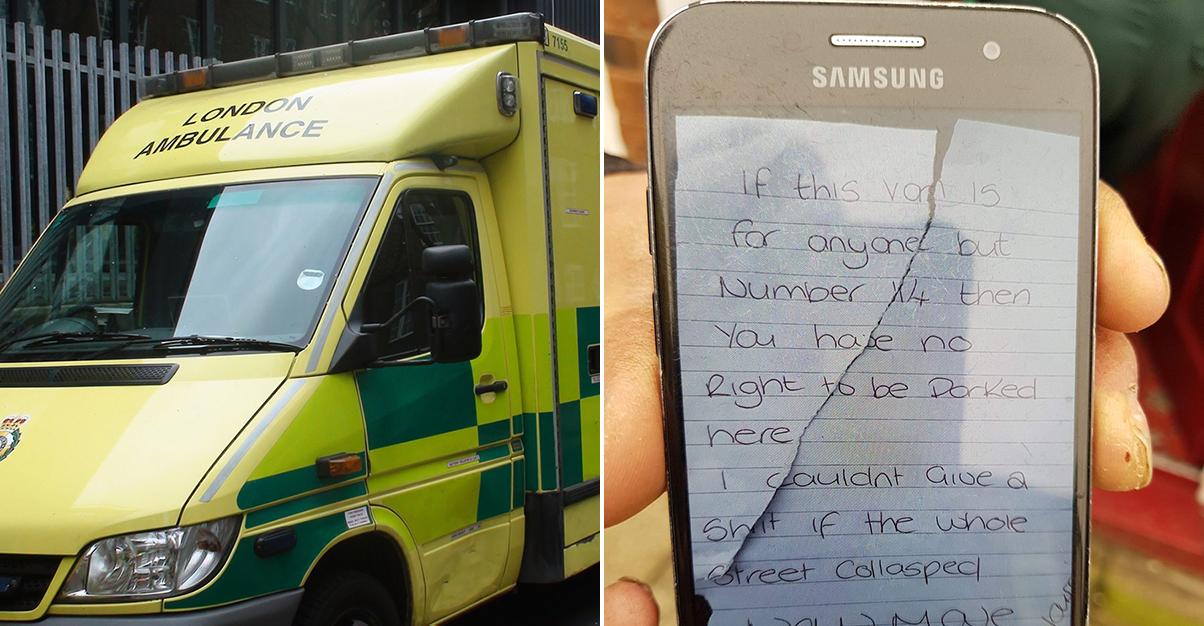 7155
LONDON
AMBULANCE
SAMSUNG
If this van is
for anyone but
Number 14 then
You have no
Right to be Parked
here
I couldnt Give a
Shit if the whole
Street Collasped
Now Move